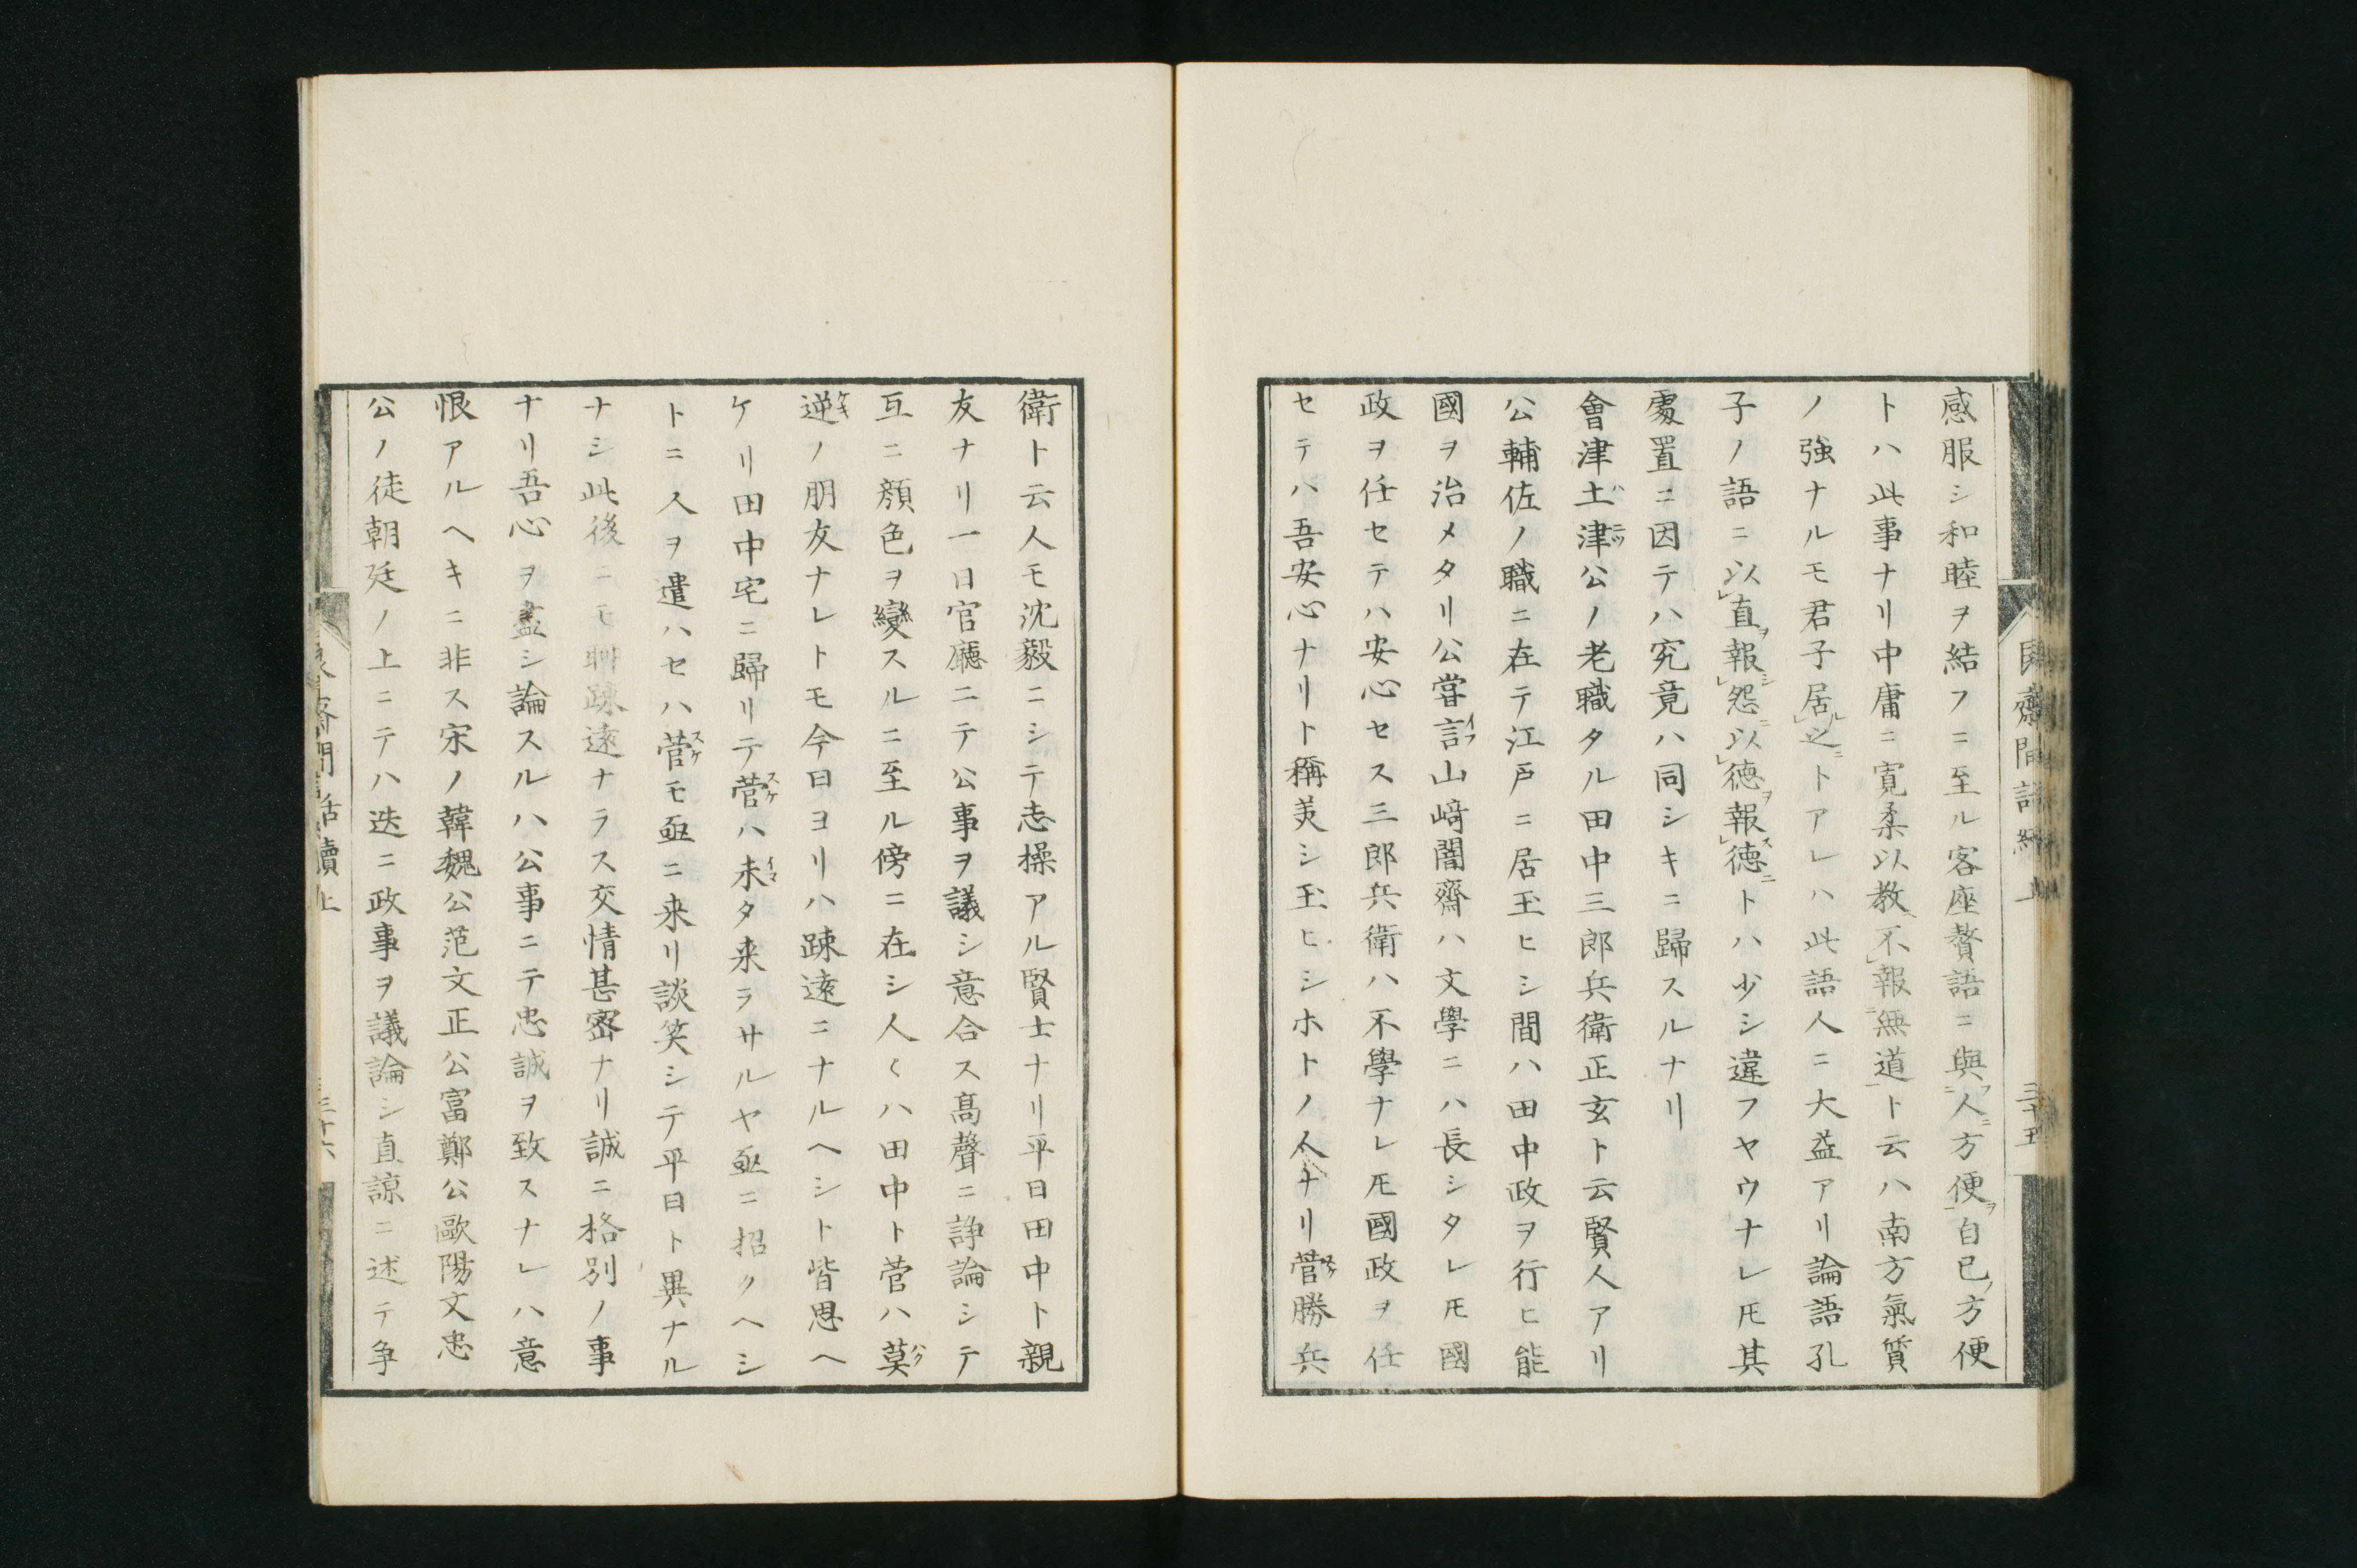 感服シ和睦ヲ結フニ至ル客座贅語ニ與人方便自己方便
トハ此事ナリ中庸ニ寛柔以教不報無道ト云ハ南方氣質
ノ強ナルモ君子居之トアレハ此語人ニ大益アリ論語孔
子ノ語ニ以直報怨以徳報徳トハ少シ違フヤウナレ𪜈其
處置ニ因テハ究竟ハ同シキニ歸スルナリ
會津土津公ノ老職タル田中三郎兵衛正玄ト云賢人アリ
公輔佐ノ職ニ在テ江戸ニ居玉ヒシ間ハ田中政ヲ行ヒ能
國ヲ治メタリ公甞言山﨑闇齋ハ文學ニハ長シタレ𪜈國
政ヲ任セテハ安心セス三郎兵衛ハ不學ナレ𪜈國政ヲ任
セテハ吾安心ナリト稱美シ玉ヒシホトノ人ナリ菅勝兵
衛ト云人モ沈毅ニシテ志操アル賢士ナリ平日田中ト親
友ナリ一日官廳ニテ公事ヲ議シ意合ス髙聲ニ諍論シテ
互ニ顔色ヲ變スルニ至ル傍ニ在シ人〱ハ田中ト菅ハ莫
逆ノ朋友ナレトモ今日ヨリハ踈遠ニナルヘシト皆思ヘ
ケリ田中宅ニ歸リテ菅ハ未タ来ラサルヤ亟ニ招クヘシ
トニ人ヲ遣ハセハ菅モ亟ニ来リ談笑シテ平日ト異ナル
ナシ此後ニモ聊踈遠ナラス交情甚密ナリ誠ニ格別ノ事
ナリ吾心ヲ盡シ論スルハ公事ニテ忠誠ヲ致スナレハ意
恨アルヘキニ非ス宋ノ韓魏公范文正公富鄭公歐陽文忠
公ノ徒朝廷ノ上ニテハ迭ニ政事ヲ議論シ直諒ニ述テ争